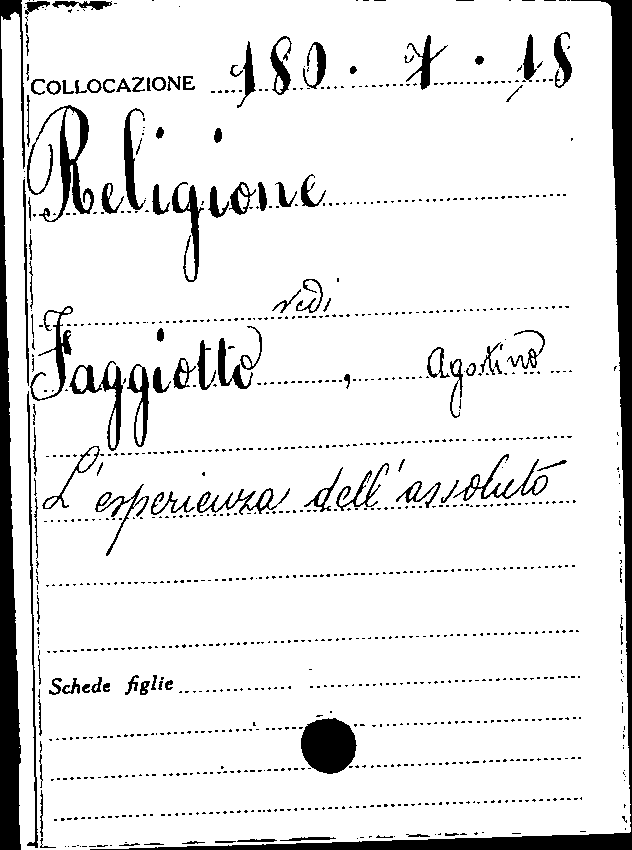 COLLOCAZIONE 180 . 7 . 18
Religione
vedi
Faggiotto , Agostino
L'esperienza dell'assoluto
Schede figlie